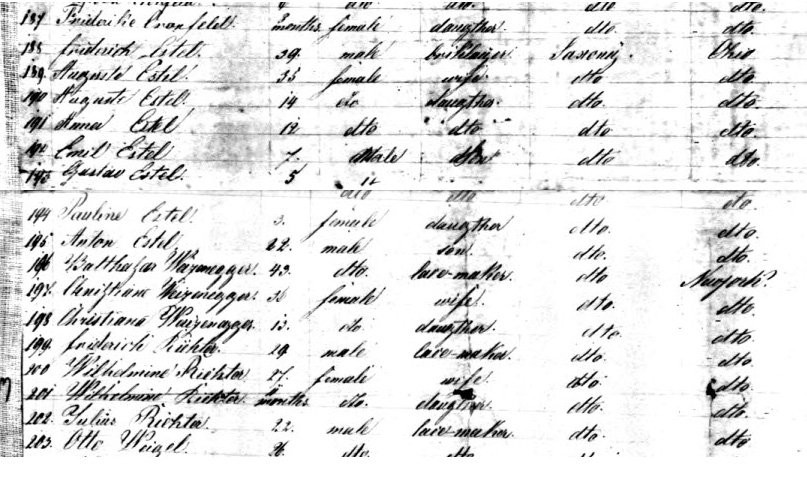 187 Friderike months female daugther dto dto.
188 friderich Estel 39. male Saxony. Ohio
189 Auguste Estel. 35 female wife dto dto.
190 Auguste Estel. 14 do daugther. dto. dto.
191 Anna Estel 12 dto dto dto dto.
192 Emil Estel 7. Male dto dto.
193 Gustav Estel. 5
dto dto dto dto.
194 Pauline Estel. 3. female daugther dto. dto.
195 Anton Estel. 22. male son dto. dto.
196 Balthasar 43. dto. lace-maker. dto Neyork.
197. female wife dto. dto.
198 Christiana 13. do daugther. dto. dto.
199. friderich Richter. 29. male lace-maker. dto. dto.
200 Wilhelmine Richter 27. female wife. dto. dto.
201 Wilhelmine Richter. months do. daugther dto. dto.
202. Julius Richter. 22. male lace-maker. dto. dto.
203. Otto Weigel. dto. dto.